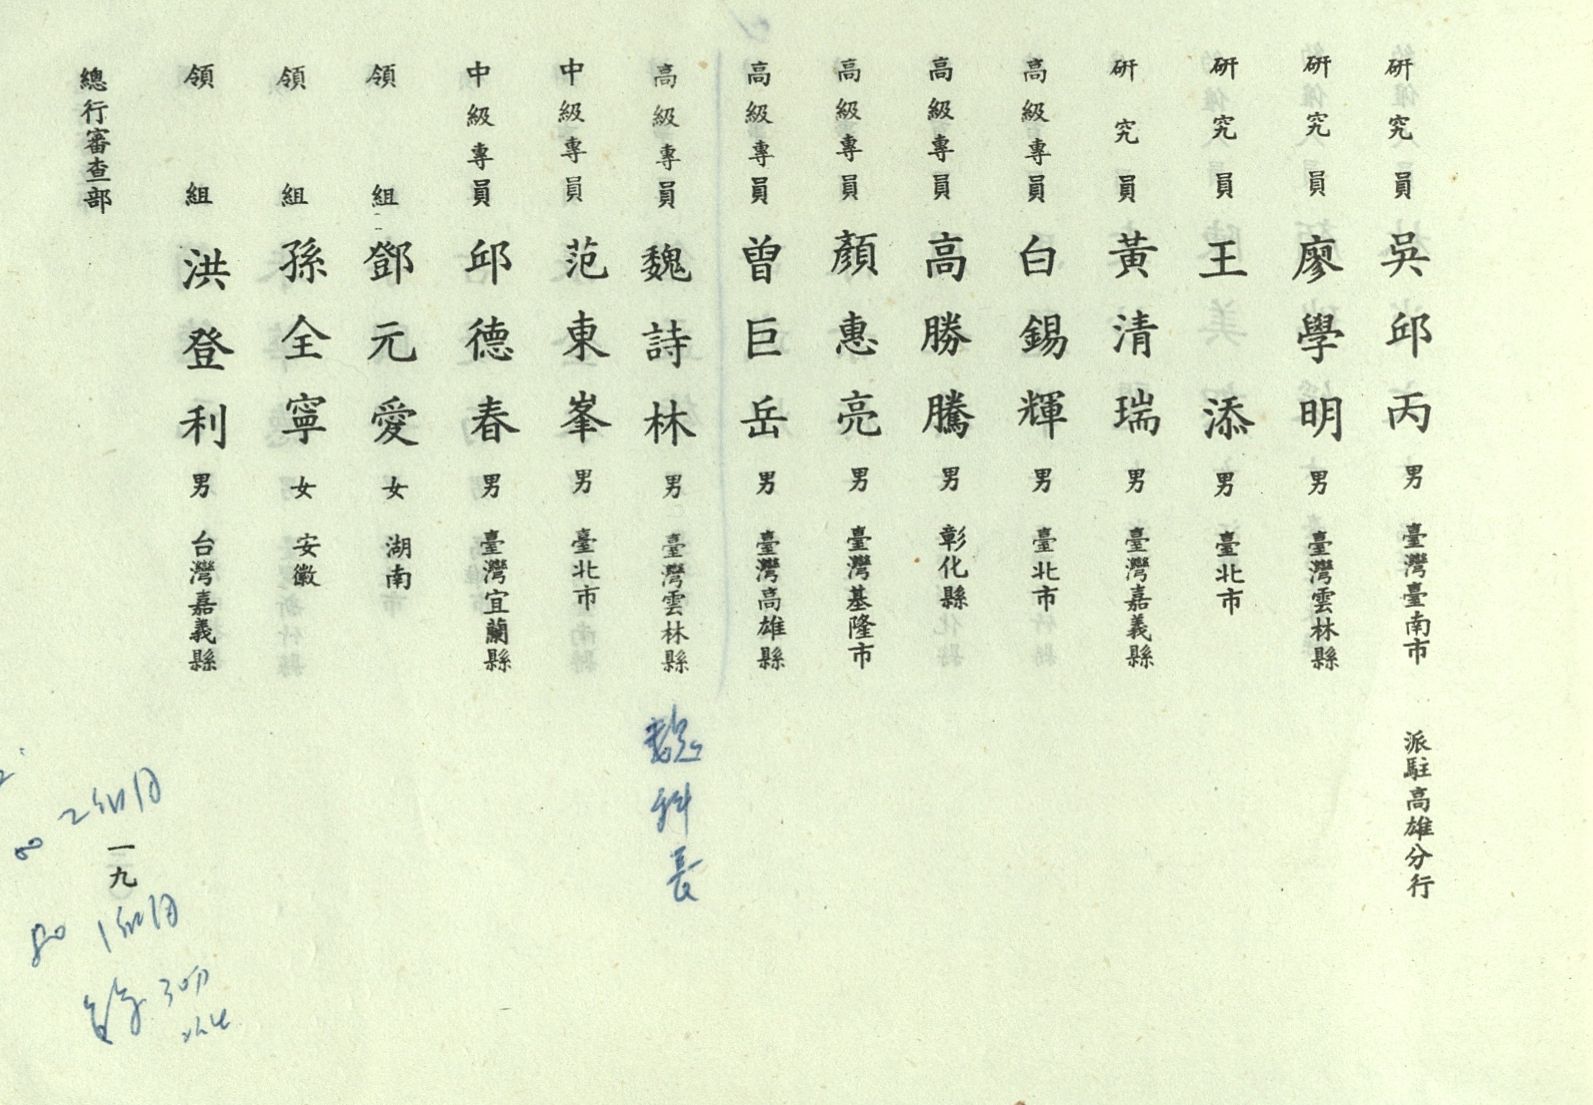 研究員 吳邱丙 男 臺灣臺南市 派駐高雄分行
研究員 廖學明 男 臺灣雲林縣
研究員 王添 男 臺北市
研究員 黃清瑞 男 臺灣嘉義縣
高級專員 白錫輝 男 臺北市
高級專員 高勝騰 男 彰化縣
高級專員 顏惠亮 男 臺灣基隆市
高級專員 曾巨岳 男 臺灣高雄縣
高級專員 魏詩林 男 臺灣雲林縣 魏科長
中級專員 范東峯 男 臺北市
中級專員 邱德春 男 臺灣宜蘭縣
領組 鄧元愛 女 湖南
領組 孫全寧 女 安徽
領組 洪登利 男 台灣嘉義縣
總行審查部
一九
80